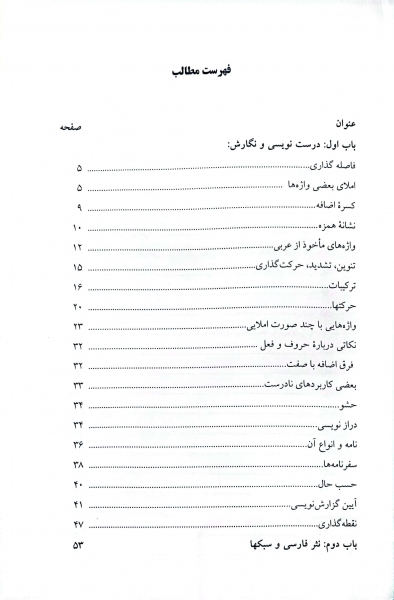 فهرست مطالب
عنوان صفحه
باب اول: درست نویسی و نگارش:
فاصله گذاری ۵
املای بعضی واژه‌ها ۵
کسرهٔ اضافه ۹
نشانهٔ همزه ۱۰
واژه‌های مأخوذ از عربی ۱۲
تنوین، تشدید، حرکت‌گذاری ۱۵
ترکیبات ۱۶
حرکتها ۲۰
واژه‌هایی با چند صورت املایی ۲۳
نکاتی دربارهٔ حروف و فعل ۳۲
فرق اضافه با صفت ۳۲
بعضی کاربردهای نادرست ۳۳
حشو ۳۴
دراز نویسی ۳۴
نامه و انواع آن ۳۶
سفرنامه‌ها ۳۸
حسب حال ۴۰
آیین گزارش‌نویسی ۴۱
نقطه‌گذاری ۴۷
باب دوم: نثر فارسی و سبکها ۵۳